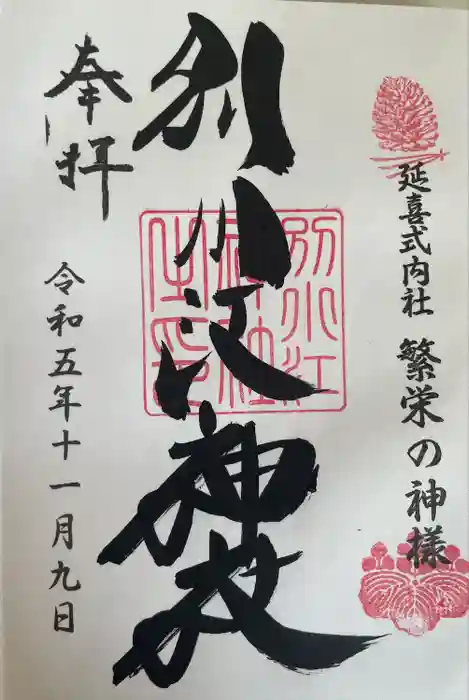 延喜式内社 繁栄の神様
別小江神社
別小江神社之印
奉拝
令和五年十一月九日